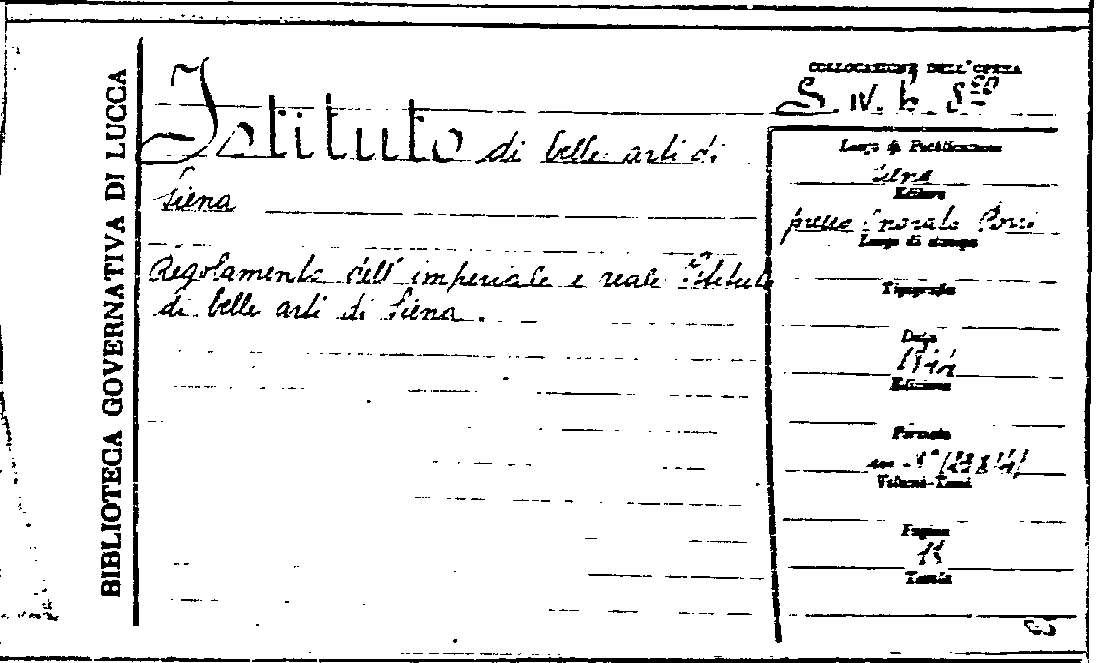 BIBLIOTECA GOVERNATIVA DI LUCCA
Istituto di belle arti di
Siena
Regolamento dell' imperiale e reale Istituto
di belle arti di Siena.
COLLOCAZIONE DELL'OPERA
S. IV. b.
Luogo di Pubblicazione
Siena
Editore
presso Onorato Porri
Luogo di stampa
Tipografia
Data
Edizione
Formato
in-8°
Volumi-Tomi
Pagine
Tavole